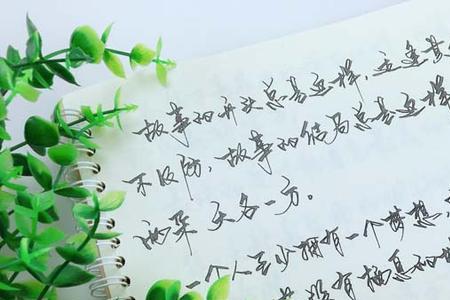 故事的开头总是这样，适逢其
不及防，故事的结局总是这样
两朵，天各一方。
一个人至少拥有一个梦想，
没有栖息的